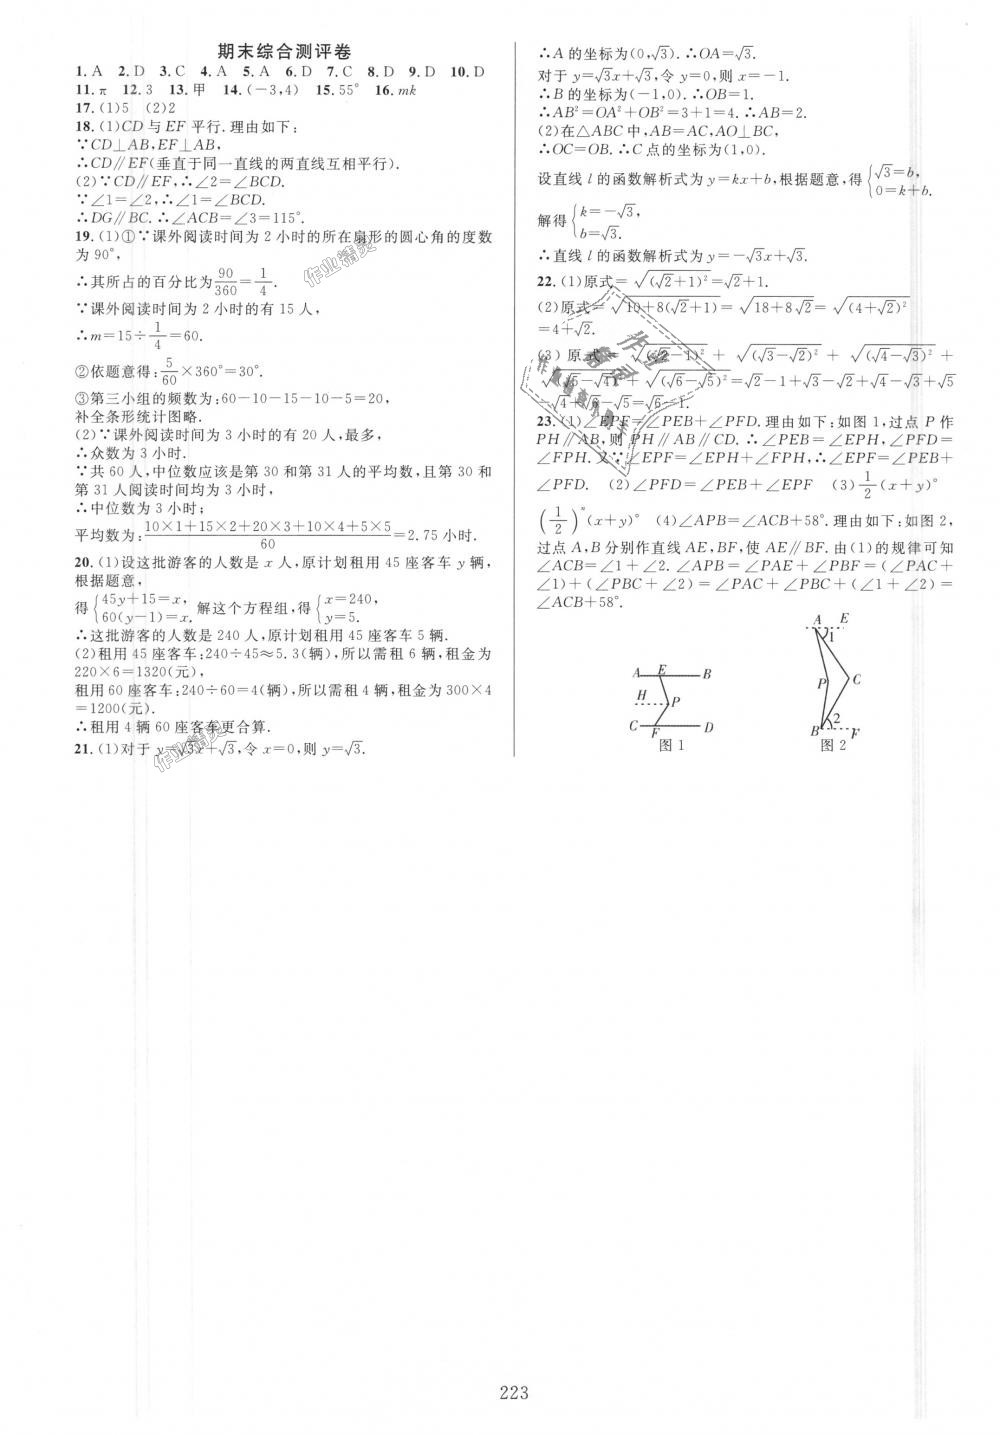 期末综合测评卷
1. A 2. D 3. C 4. A 5. A 6. D 7. C 8. D 9. D 10. D
11. π 12. 3 13. 甲 14. (-3,4) 15. 55° 16. mk
17. (1)5 (2)2
18. (1)CD 与 EF 平行. 理由如下:
∵CD⊥AB,EF⊥AB,
∴CD∥EF(垂直于同一直线的两直线互相平行).
(2)∵CD∥EF,∴∠2=∠BCD.
∵∠1=∠2,∴∠1=∠BCD.
∴DG∥BC. ∴∠ACB=∠3=115°.
19. (1)①∵课外阅读时间为 2 小时的所在扇形的圆心角的度数
为 90°,
∴其所占的百分比为90/360=1/4.
∵课外阅读时间为 2 小时的有 15 人,
∴m=15÷1/4=60.
②依题意得:5/60×360°=30°.
③第三小组的频数为:60-10-15-10-5=20,
补全条形统计图略.
(2)∵课外阅读时间为 3 小时的有 20 人,最多,
∴众数为 3 小时.
∵共 60 人,中位数应该是第 30 和第 31 人的平均数,且第 30 和
第 31 人阅读时间均为 3 小时,
∴中位数为 3 小时,
平均数为:(10×1+15×2+20×3+10×4+5×5)/60=2.75 小时.
20. (1)设这批游客的人数是 x 人,原计划租用 45 座客车 y 辆,
根据题意,
得{45y+15=x, 60(y-1)=x. 解这个方程组,得{x=240, y=5.
∴这批游客的人数是 240 人,原计划租用 45 座客车 5 辆.
(2)租用 45 座客车:240÷45≈5.3(辆),所以需租 6 辆,租金为
220×6=1320(元),
租用 60 座客车:240÷60=4(辆),所以需租 4 辆,租金为 300×4
=1200(元).
∴租用 4 辆 60 座客车更合算.
21. (1)对于 y=√3x+√3,令 x=0,则 y=√3.
∴A 的坐标为(0,√3). ∴OA=√3.
对于 y=√3x+√3,令 y=0,则 x=-1.
∴B 的坐标为(-1,0). ∴OB=1.
∴AB²=OA²+OB²=3+1=4. ∴AB=2.
(2)在△ABC 中,AB=AC,AO⊥BC,
∴OC=OB. ∴C 点的坐标为(1,0).
设直线 l 的函数解析式为 y=kx+b,根据题意,得{√3=b, 0=k+b.
解得{k=-√3, b=√3.
∴直线 l 的函数解析式为 y=-√3x+√3.
22. (1)原式=√(√2+1)²=√2+1.
(2)原式=√10+8(√2+1)=√18+8√2=√(4+√2)²
=4+√2.
(3) 原式=√(√2-1)² + √(√3-√2)² + √(√4-√3)² +
√(√5-√4)²+√(√6-√5)²=√2-1+√3-√2+√4-√3+√5
-√4+√6-√5=√6-1.
23. (1)∠EPF=∠PEB+∠PFD. 理由如下:如图 1,过点 P 作
PH∥AB,则 PH∥AB∥CD. ∴∠PEB=∠EPH,∠PFD=
∠FPH. 又∵∠EPF=∠EPH+∠FPH,∴∠EPF=∠PEB+
∠PFD. (2)∠PFD=∠PEB+∠EPF (3)1/2(x+y)°
(1/2)ⁿ(x+y)° (4)∠APB=∠ACB+58°. 理由如下:如图 2,
过点 A,B 分别作直线 AE,BF,使 AE∥BF. 由(1)的规律可知
∠ACB=∠1+∠2. ∠APB=∠PAE+∠PBF=(∠PAC+
∠1)+(∠PBC+∠2)=∠PAC+∠PBC+(∠1+∠2)=
∠ACB+58°.
A E B
H P
C F D
图 1
A E
1
P C
2
B F
图 2
作业精灵
作业精灵
223